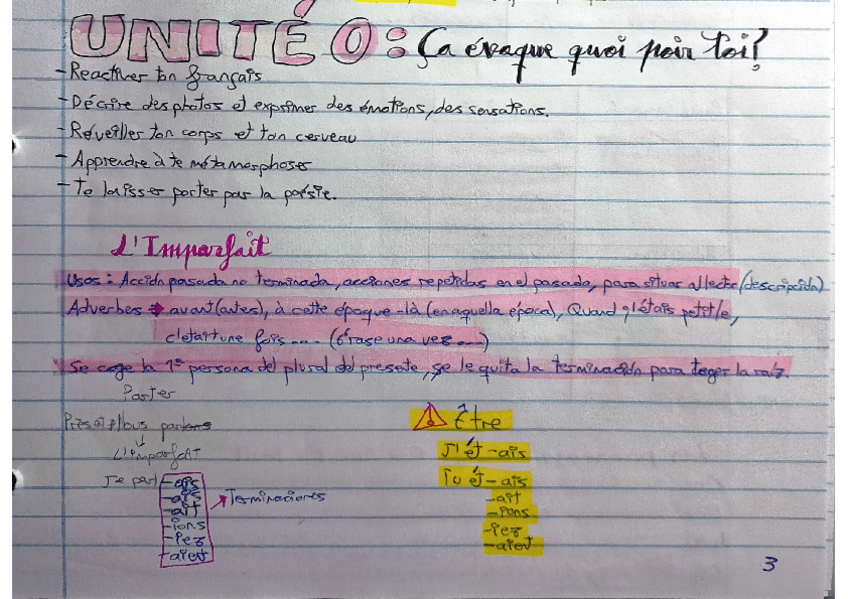 UNITÉ 0: Ça évoque quoi pour toi?
- Reactiver ton français
- Décrire des photos et exprimer des émotions, des sensations.
- Réveiller ton corps et ton cerveau
- Apprendre à te métamorphoser
- Te laisser porter par la poésie.
L'Imparfait
Usos: Acción pasada no terminada, acciones repetidas en el pasado, para situar al lector (descripción)
Adverbes → avant (antes), à cette époque-là (en aquella época), Quand j'étais petit/e,
c'était une fois... (érase una vez...)
Se coge la 1ª persona del plural del presente, se le quita la terminación para coger la raíz.
Parler
Présent Nous parlons
↓
L'imparfait
Je parl -ais
-ais
-ait
-ions
-iez
-aient
→ Terminaciones
Être
J'ét-ais
Tu ét-ais
-ait
-ions
-iez
-aient
3